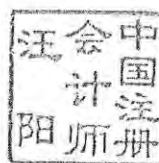 中国注册
会计师
汪阳